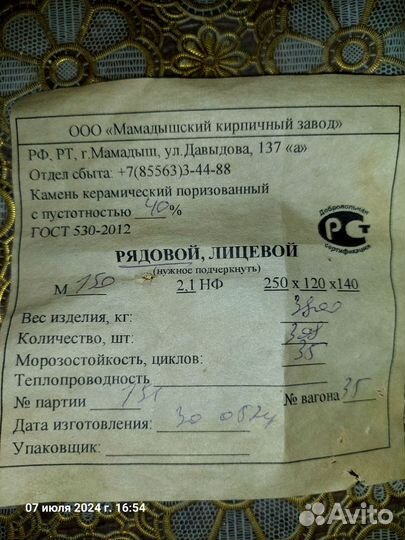 ООО «Мамадышский кирпичный завод»
РФ, РТ, г.Мамадыш, ул.Давыдова, 137 «а»
Отдел сбыта: +7(85563)3-44-88
Камень керамический поризованный
с пустотностью 40%
ГОСТ 530-2012
Добровольная
РСТ
сертификация
РЯДОВОЙ, ЛИЦЕВОЙ
(нужное подчеркнуть)
М 150 2,1 НФ 250 х 120 х140
Вес изделия, кг:
Количество, шт:
Морозостойкость, циклов: 35
Теплопроводность
№ партии № вагона 35
Дата изготовления: 30
Упаковщик:
07 июля 2024 г. 16:54
Avito